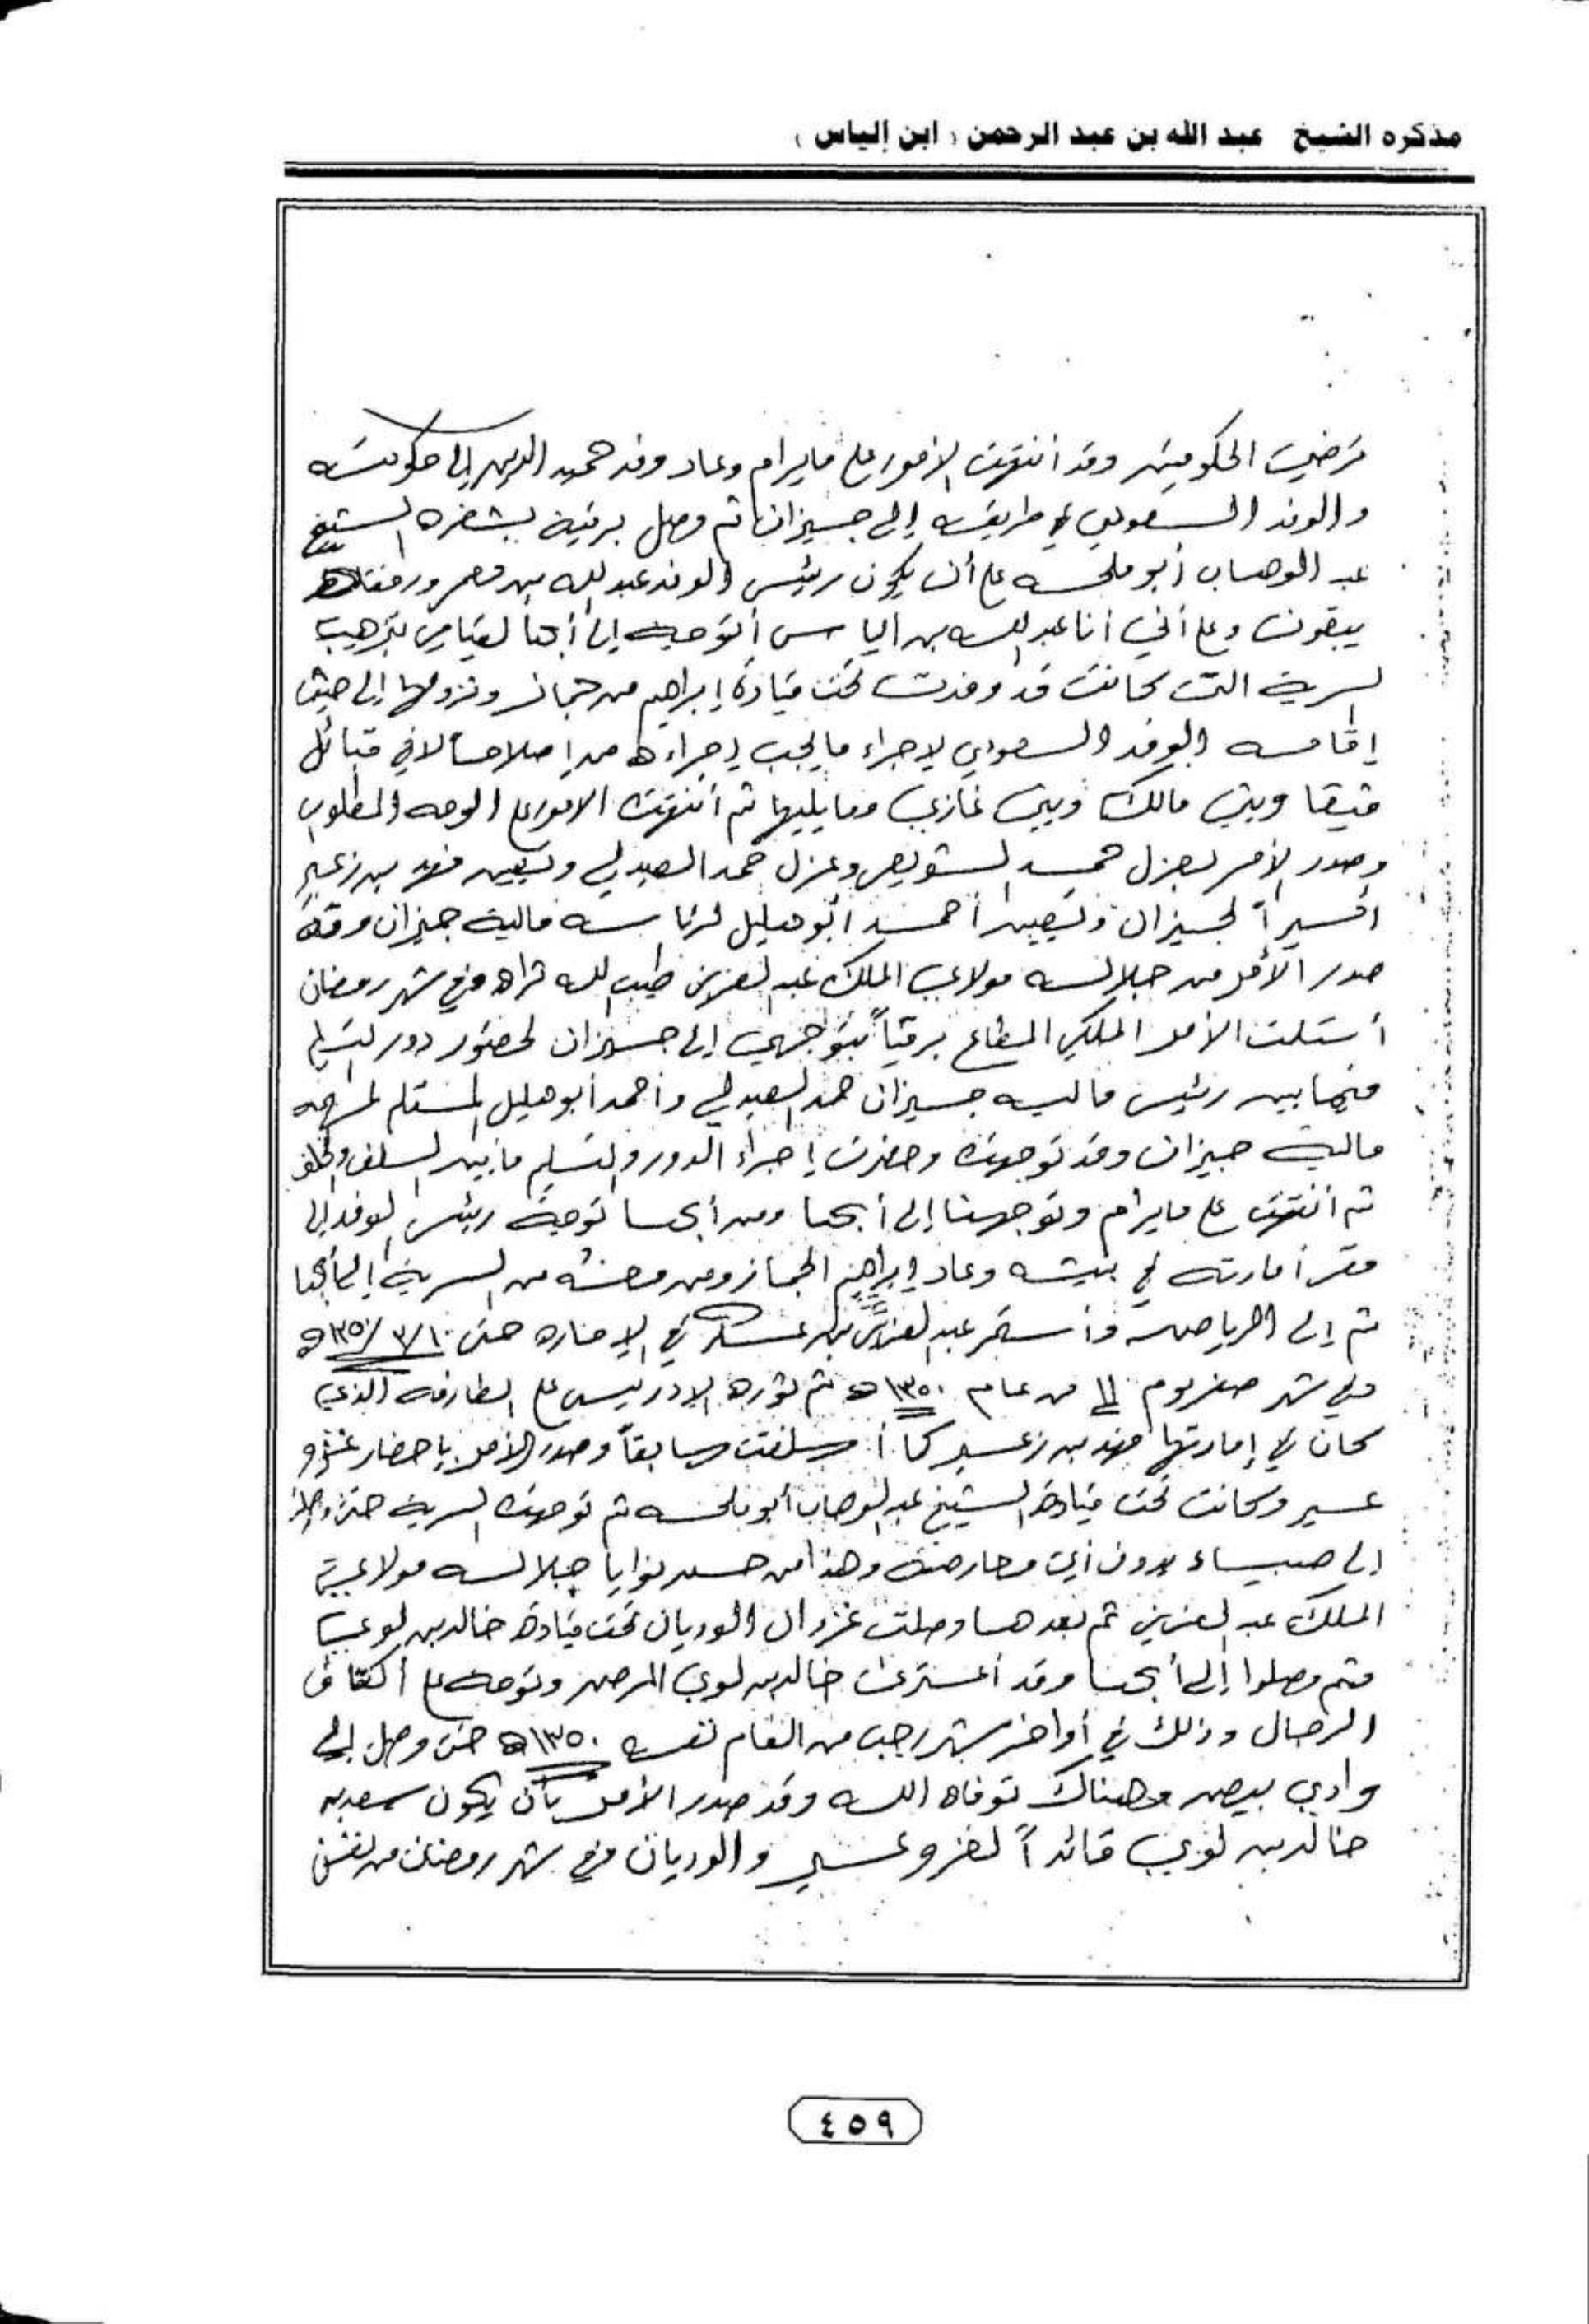 مذكره الشيخ عبد الله بن عبد الرحمن ( ابن إلياس )
ترضي الحكومتين وقد انتهت الأمور على مايرام وعاد وفد حميد الدين إلى حكومته
والوفد السعودي في طريقه إلى جيزان ثم وصل برقية بشفره الشيخ
عبد الوهاب أبو ملحه على أن يكون رئيس الوفد عبد الله بن معمر ورفقته
يبقون وعلى أني أنا عبد الله بن الياس أتوجه إلى أبها لقيامي بترهيب
السرية التي كانت قد وفدت تحت قيادة إبراهيم من جماز ونزولها إلى حيث
إقامة الوفد السعودي لإجراء مايجب إجراءه من إصلاحاً لافي قبائل
فيفا وبني مالك وبني غازي ومايليها ثم أنتهت الامور على الوجه المطلوب
وصدر الأمر بعزل حمد الشويعر وعزل حمد العبدلي وتعيين فهد بن زعير
أميراً لجيزان وتعيين أحمد أبو هليل لرئاسة مالية جيزان وقد
صدر الأمر من جلالة مولاي الملك عبد العزيز طيب الله ثراه وفي شهر رمضان
أستلمت الأمر الملكي المطاع برقياً بتوجهي إلى جيزان لحضور دور التسليم
فيما بين رئيس مالية جيزان حمد العبدلي وأحمد أبو هليل المستلم لمهمه
مالية جيزان وقد توجهت وحضرت إجراء الدور والتسليم مابين السلف والخلف
ثم أنتهت على مايرام وتوجهنا إلى أبها ومن أبها توجه رئيس الوفد إلى
مقر أمارته في بيشه وعاد إبراهيم الجماز ومن معه من السرية إلى أبها
ثم إلى الرياض وأستمر عبد العزيز بن عسكر في الإماره حتى ١٣٥٠/٣/١٠هـ
وفي شهر صفر يوم ١١ من عام ١٣٥٠هـ تم ثورة الإدريسي على الطارفه الذي
كان في إمارتها فهد بن زعير كما أسلفت سابقاً وصدر الأمر بإحضار غزو
عسير وكانت تحت قيادة الشيخ عبد الوهاب أبو ملحه ثم توجهت السرية حتى وصلت
إلى صبياء بدون أي معارضة وهذا من حسن نوايا جلالة مولاي
الملك عبد العزيز ثم بعدها وصلت غزوان الوديان تحت قيادة خالد بن لوي
وثم وصلوا إلى أبها وقد أعترت خالد بن لوي المرض وتوجه على أكتاف
الرجال وذلك في أواخر شهر رجب من العام نفسه ١٣٥٠هـ حتى وصل إلى
وادي بيض وهناك توفاه الله وقد صدر الأمر بأن يكون سعد بن
خالد بن لوي قائداً لغزو عسير والوديان وفي شهر رمضان من نفس
٤٥٩